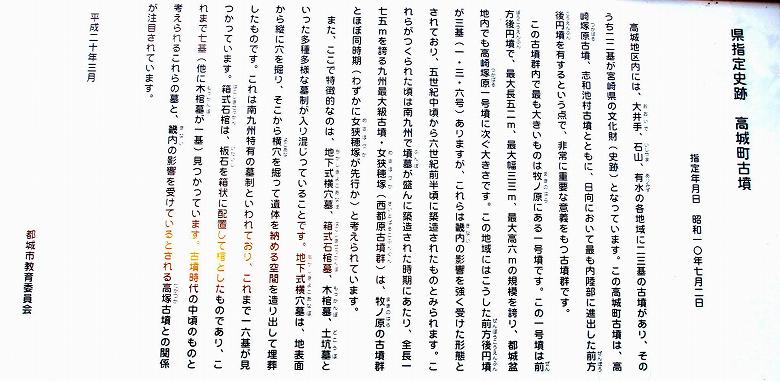 県指定史跡　高城町古墳
指定年月日　昭和一〇年七月二日
高城地区内には、大井手、石山、有水の各地域に二三基の古墳があり、その
うち二二基が宮崎県の文化財（史跡）となっています。この高城町古墳は、高
崎塚原古墳、志和池村古墳とともに、日向において最も内陸部に進出した前方
後円墳を有するという点で、非常に重要な意義をもつ古墳群です。
この古墳群内で最も大きいものは牧ノ原にある一号墳です。この一号墳は前
方後円墳で、最大長五二ｍ、最大幅三三ｍ、最大高六ｍの規模を誇り、都城盆
地内でも高崎塚原一号墳に次ぐ大きさです。この地域にはこうした前方後円墳
が三基（一・三・六号）ありますが、これらは畿内の影響を強く受けた形態と
されており、五世紀中頃から六世紀前半頃に築造されたものとみられます。こ
れらがつくられた頃は南九州で墳墓が盛んに築造された時期にあたり、全長一
七五ｍを誇る九州最大級古墳・女狭穂塚（西都原古墳群）は、牧ノ原の古墳群
とほぼ同時期（わずかに女狭穂塚が先行か）と考えられています。
また、ここで特徴的なのは、地下式横穴墓、箱式石棺墓、木棺墓、土坑墓と
いった多種多様な墓制が入り混じっていることです。地下式横穴墓は、地表面
から縦に穴を掘り、そこから横穴を掘って遺体を納める空間を造り出して埋葬
したものです。これは南九州特有の墓制といわれており、これまで一六基が見
つかっています。箱式石棺は、板石を箱状に配置して棺としたものであり、こ
れまで七基（他に木棺墓が一基）見つかっています。古墳時代の中頃のものと
考えられるこれらの墓と、畿内の影響を受けているとされる高塚古墳との関係
が注目されています。
平成二十年三月
都城市教育委員会